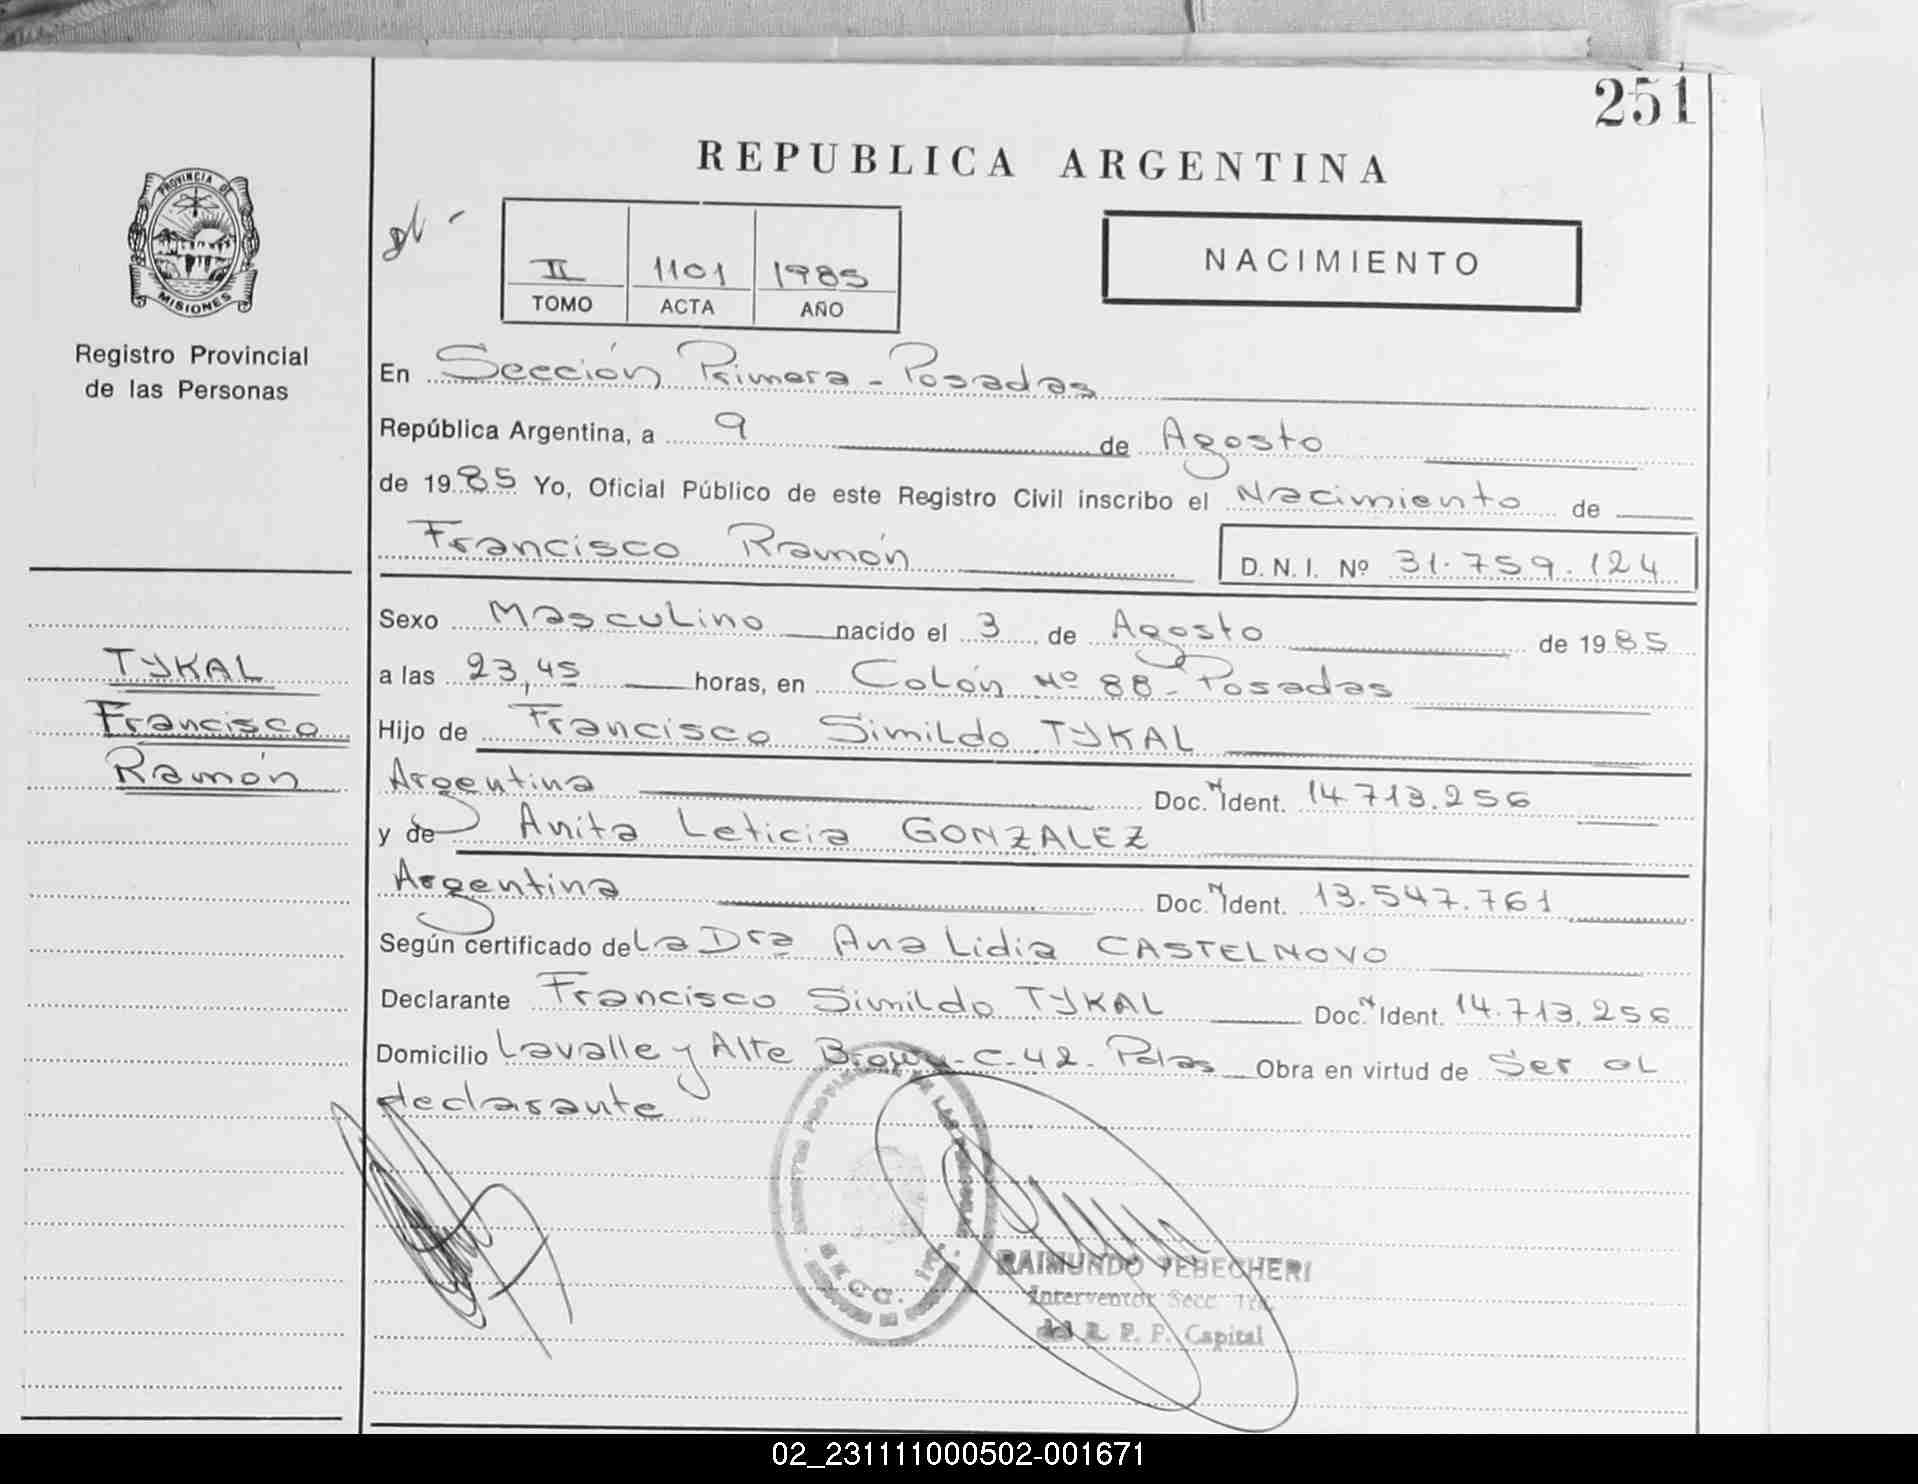 251
REPUBLICA ARGENTINA
PROVINCIA DE
MISIONES
II 1101 1985
TOMO ACTA AÑO
NACIMIENTO
Registro Provincial
de las Personas
En Sección Primera - Posadas
República Argentina, a 9 de Agosto
de 1985 Yo, Oficial Público de este Registro Civil inscribo el Nacimiento de
Francisco Ramón D. N. I. Nº 31.759.124
TYKAL
Francisco
Ramón
Sexo Masculino nacido el 3 de Agosto de 1985
a las 23,45 horas, en Colón Nº 88 - Posadas
Hijo de Francisco Simildo TYKAL
Argentina Doc. N Ident. 14.713.256
y de Anita Leticia GONZALEZ
Argentina Doc. N Ident. 13.547.761
Según certificado de La Dra Ana Lidia CASTELNOVO
Declarante Francisco Simildo TYKAL Doc. N Ident. 14.713.256
Domicilio Lavalle y Alte Brown - C-42 - Pdas Obra en virtud de Ser el
declarante
RAIMUNDO YEBECHERI
Interventor Secc. 1ra.
del R. P. P. Capital
02_231111000502-001671